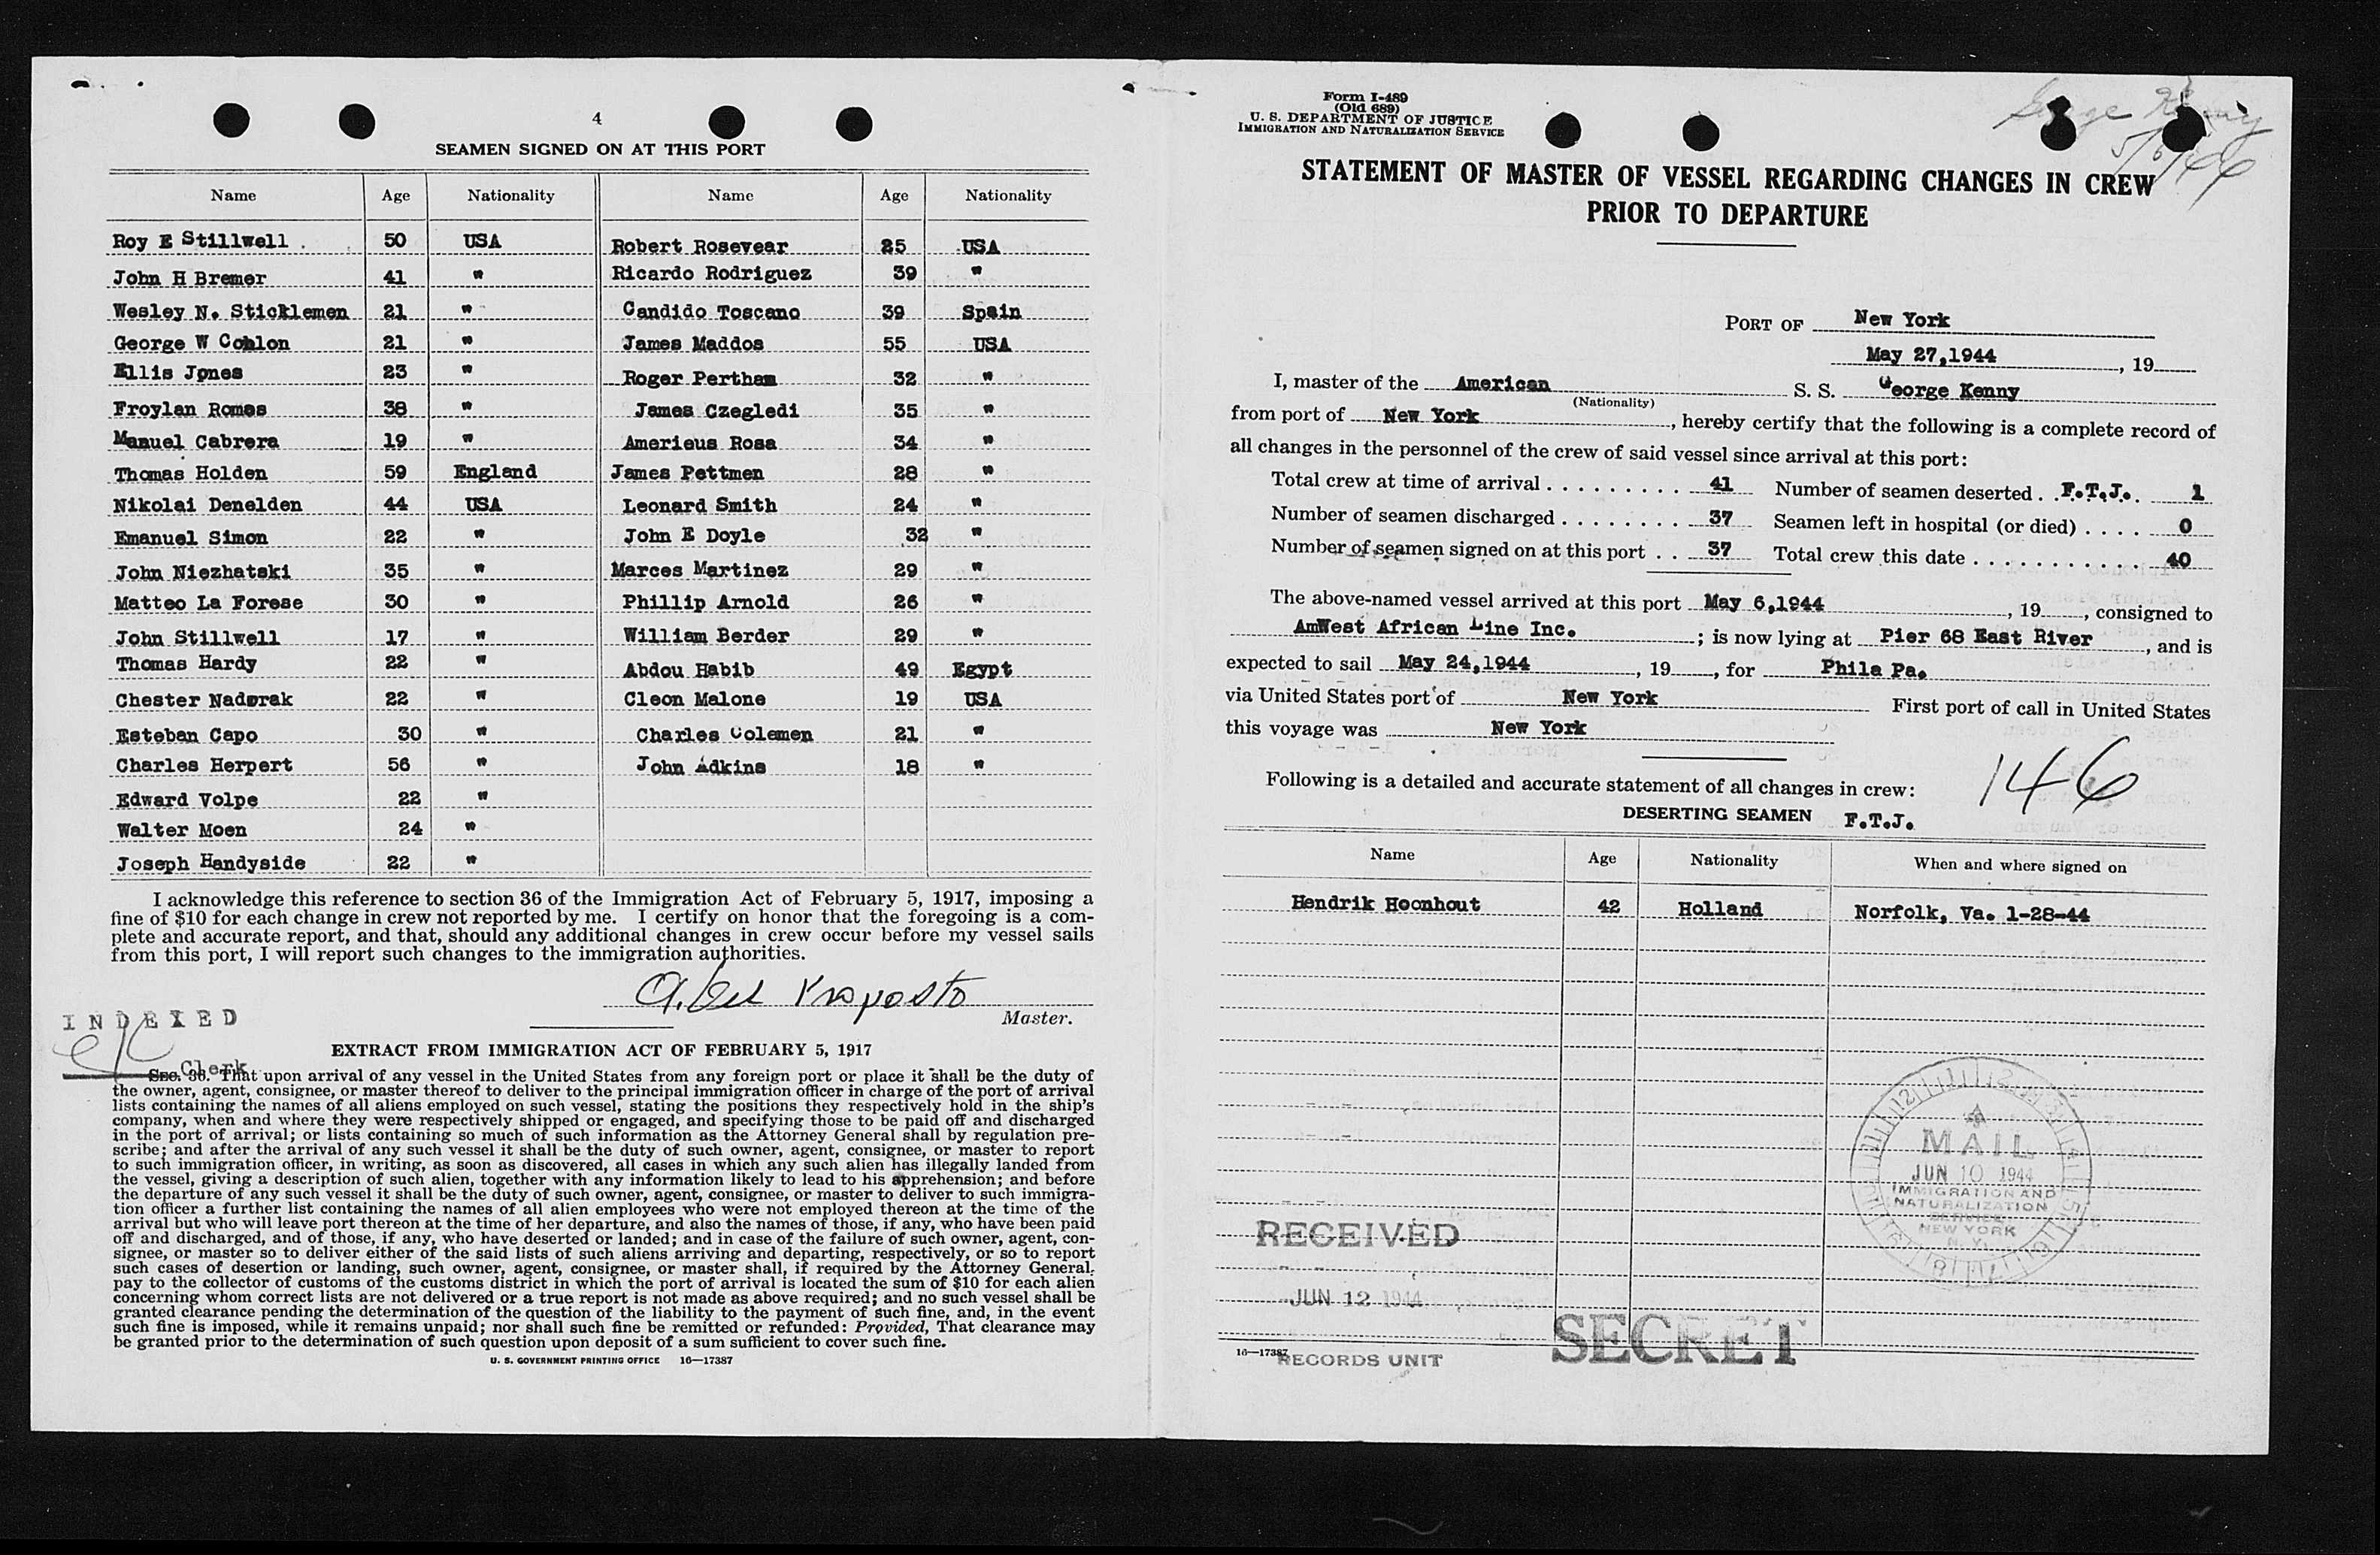 4
SEAMEN SIGNED ON AT THIS PORT
Name Age Nationality Name Age Nationality
Roy E Stillwell 50 USA Robert Rosevear 25 USA
John H Bremer 41 " Ricardo Rodriguez 39 "
Wesley N. Sticklemen 21 " Candido Toscano 39 Spain
George W Conlon 21 " James Maddos 55 USA
Ellis Jones 23 " Roger Pertham 32 "
Froylan Romas 38 " James Czegledi 35 "
Manuel Cabrera 19 " Amerieus Rosa 34 "
Thomas Holden 59 England James Pettmen 28 "
Nikolai Denelden 44 USA Leonard Smith 24 "
Emanuel Simon 22 " John E Doyle 32 "
John Niezhatski 35 " Marces Martinez 29 "
Matteo La Forese 30 " Phillip Arnold 26 "
John Stillwell 17 " William Berder 29 "
Thomas Hardy 22 " Abdou Habib 49 Egypt
Chester Nadorak 22 " Cleon Malone 19 USA
Esteban Capo 30 " Charles Colemen 21 "
Charles Herpert 56 " John Adkins 18 "
Edward Volpe 22 "
Walter Moen 24 "
Joseph Handyside 22 "
I acknowledge this reference to section 36 of the Immigration Act of February 5, 1917, imposing a
fine of $10 for each change in crew not reported by me. I certify on honor that the foregoing is a com-
plete and accurate report, and that, should any additional changes in crew occur before my vessel sails
from this port, I will report such changes to the immigration authorities.
Master.
INDEXED
Clerk
EXTRACT FROM IMMIGRATION ACT OF FEBRUARY 5, 1917
SEC. 36. That upon arrival of any vessel in the United States from any foreign port or place it shall be the duty of
the owner, agent, consignee, or master thereof to deliver to the principal immigration officer in charge of the port of arrival
lists containing the names of all aliens employed on such vessel, stating the positions they respectively hold in the ship's
company, when and where they were respectively shipped or engaged, and specifying those to be paid off and discharged
in the port of arrival; or lists containing so much of such information as the Attorney General shall by regulation pre-
scribe; and after the arrival of any such vessel it shall be the duty of such owner, agent, consignee, or master to report
to such immigration officer, in writing, as soon as discovered, all cases in which any such alien has illegally landed from
the vessel, giving a description of such alien, together with any information likely to lead to his apprehension; and before
the departure of any such vessel it shall be the duty of such owner, agent, consignee, or master to deliver to such immigra-
tion officer a further list containing the names of all alien employees who were not employed thereon at the time of the
arrival but who will leave port thereon at the time of her departure, and also the names of those, if any, who have been paid
off and discharged, and of those, if any, who have deserted or landed; and in case of the failure of such owner, agent, con-
signee, or master so to deliver either of the said lists of such aliens arriving and departing, respectively, or so to report
such cases of desertion or landing, such owner, agent, consignee, or master shall, if required by the Attorney General,
pay to the collector of customs of the customs district in which the port of arrival is located the sum of $10 for each alien
concerning whom correct lists are not delivered or a true report is not made as above required; and no such vessel shall be
granted clearance pending the determination of the question of the liability to the payment of such fine, and, in the event
such fine is imposed, while it remains unpaid; nor shall such fine be remitted or refunded: Provided, That clearance may
be granted prior to the determination of such question upon deposit of a sum sufficient to cover such fine.
U. S. GOVERNMENT PRINTING OFFICE 16—17387
Form I-489
(Old 689)
U. S. DEPARTMENT OF JUSTICE
IMMIGRATION AND NATURALIZATION SERVICE
George Kenny
5/6/44
STATEMENT OF MASTER OF VESSEL REGARDING CHANGES IN CREW
PRIOR TO DEPARTURE
PORT OF New York
May 27,1944, 19
I, master of the American S. S. George Kenny
(Nationality)
from port of New York, hereby certify that the following is a complete record of
all changes in the personnel of the crew of said vessel since arrival at this port:
Total crew at time of arrival . . . . . . . . . 41 Number of seamen deserted . . F.T.J. . 1
Number of seamen discharged . . . . . . . . 37 Seamen left in hospital (or died) . . . . 0
Number of seamen signed on at this port . . 37 Total crew this date . . . . . . . . . . . 40
The above-named vessel arrived at this port May 6,1944, 19, consigned to
AmWest African Line Inc. ; is now lying at Pier 68 East River, and is
expected to sail May 24,1944, 19, for Phila Pa.
via United States port of New York First port of call in United States
this voyage was New York
Following is a detailed and accurate statement of all changes in crew:
146
DESERTING SEAMEN F.T.J.
Name Age Nationality When and where signed on
Hendrik Hoonhout 42 Holland Norfolk, Va. 1-28-44
MAIL
JUN 10 1944
IMMIGRATION AND
NATURALIZATION
SERVICE
NEW YORK
N. Y.
RECEIVED
JUN 12 1944
RECORDS UNIT
SECRET
16—17387